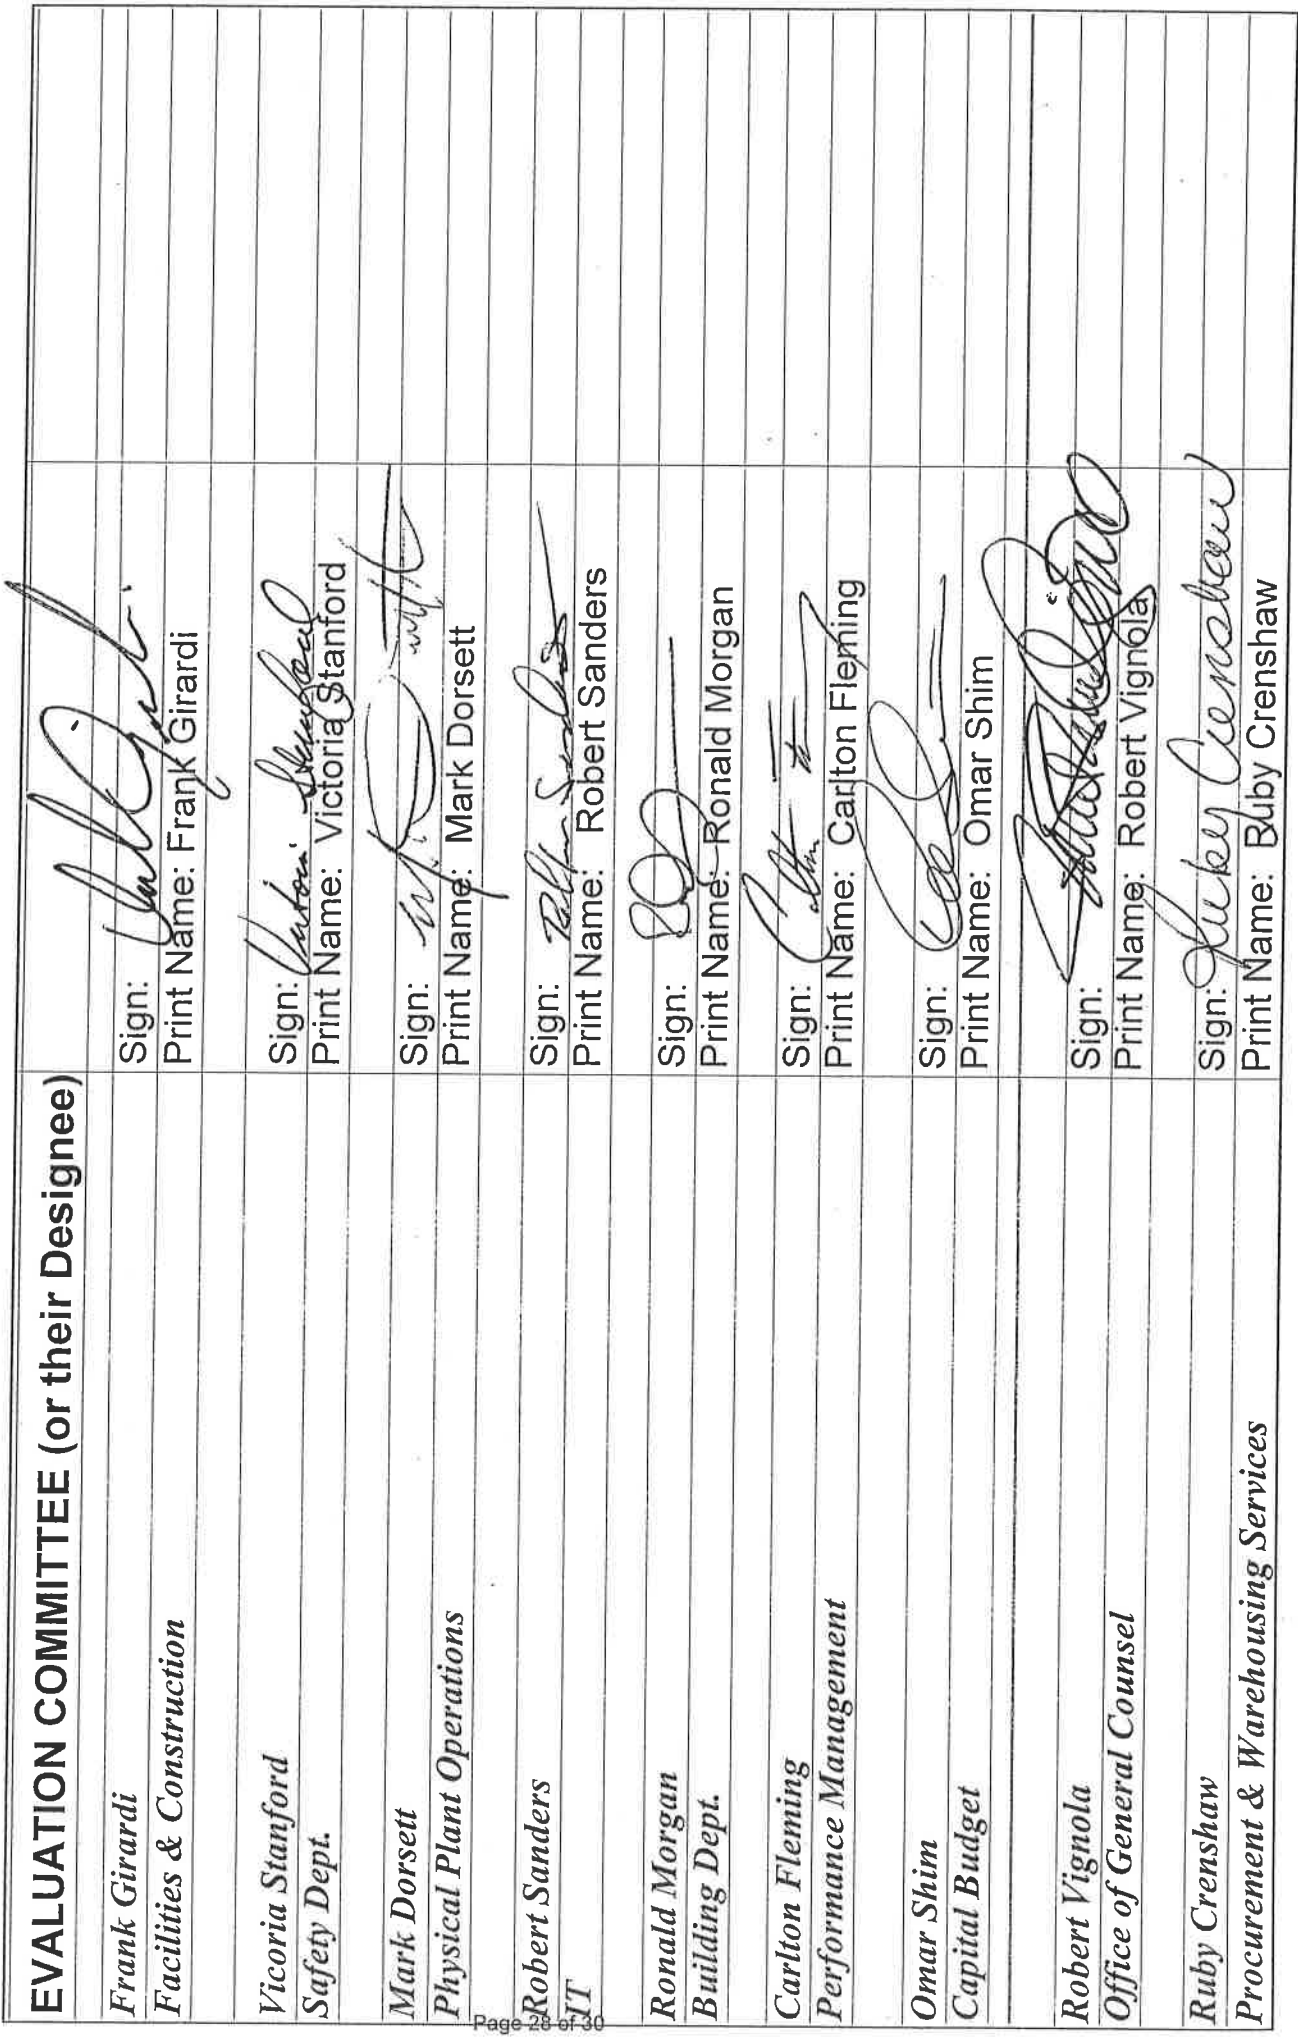 EVALUATION COMMITTEE (or their Designee)
Frank Girardi
Sign:
Facilities & Construction
Print Name: Frank Girardi
Vicoria Stanford
Sign: Victoria Stanford
Safety Dept.
Print Name: Victoria Stanford
Mark Dorsett
Sign:
Physical Plant Operations
Print Name: Mark Dorsett
Robert Sanders
Sign:
IT
Print Name: Robert Sanders
Ronald Morgan
Sign:
Building Dept.
Print Name: Ronald Morgan
Carlton Fleming
Sign:
Performance Management
Print Name: Carlton Fleming
Omar Shim
Sign:
Capital Budget
Print Name: Omar Shim
Robert Vignola
Sign:
Office of General Counsel
Print Name: Robert Vignola
Ruby Crenshaw
Sign: Ruby Crenshaw
Procurement & Warehousing Services
Print Name: Ruby Crenshaw
Page 28 of 30